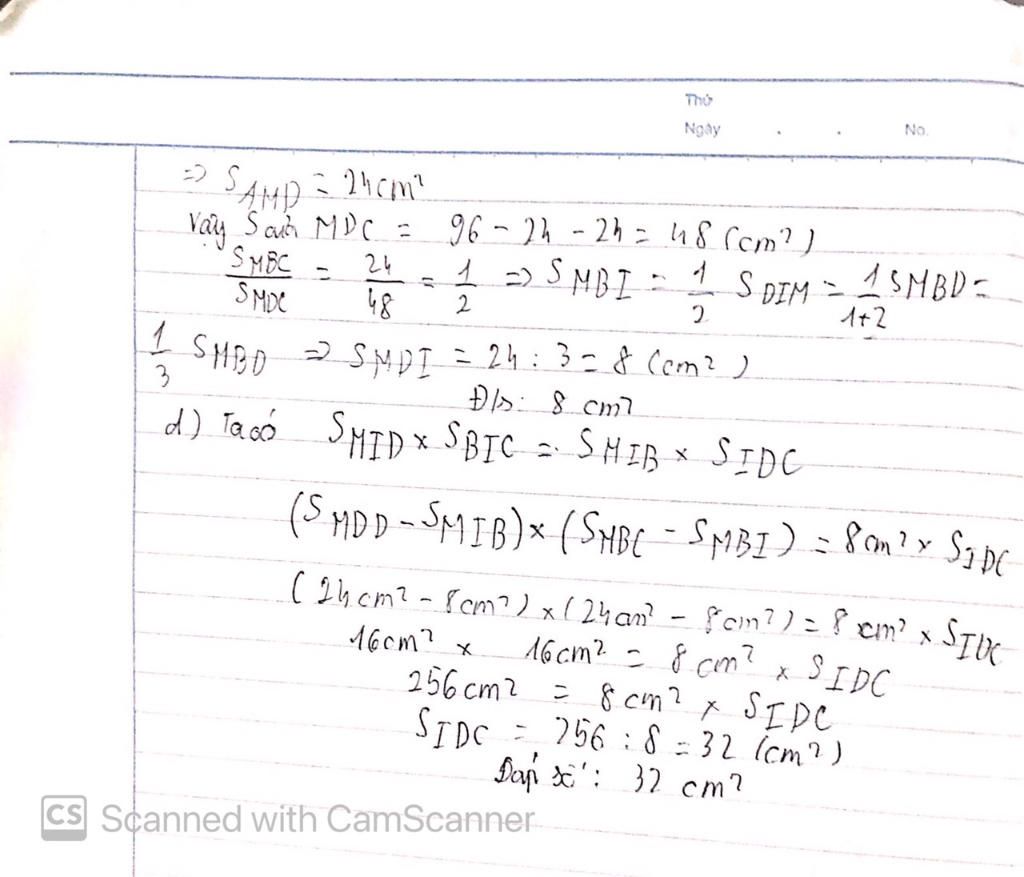 Thứ
Ngày . . No.
=> S AMD = 24 cm²
Vậy S của MDC = 96 - 24 - 24 = 48 (cm²)
S MBC / S MDC = 24/48 = 1/2 => S MBI = 1/2 S DIM = 1/(1+2) S MBD =
1/3 S MBD => S MDI = 24 : 3 = 8 (cm²)
Đ/s: 8 cm²
d) Ta có S MID x S BIC = S MIB x S IDC
(S MDD - S MIB) x (S MBC - S MBI) = 8 cm² x S IDC
(24 cm² - 8 cm²) x (24 cm² - 8 cm²) = 8 cm² x S IDC
16 cm² x 16 cm² = 8 cm² x S IDC
256 cm² = 8 cm² x S IDC
S IDC = 256 : 8 = 32 (cm²)
Đáp số: 32 cm²
CS Scanned with CamScanner